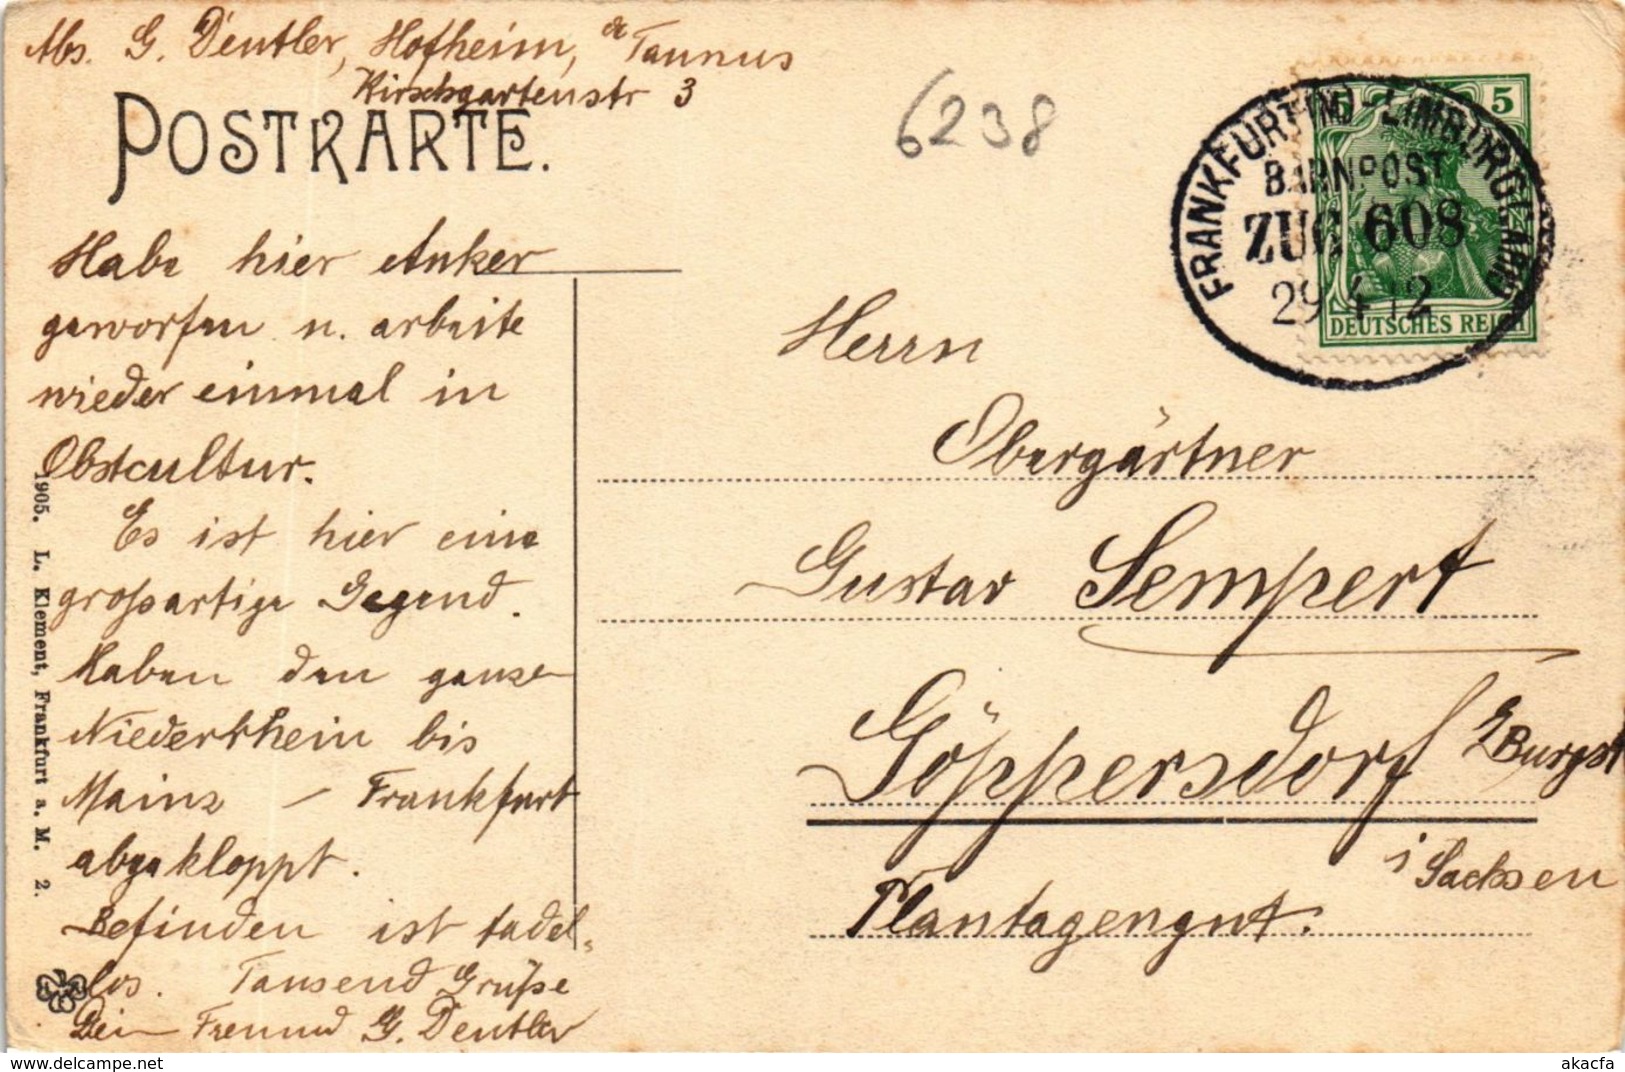 Abs. G. Deutler, Hofheim, Taunus
Kirschgartenstr 3
POSTKARTE.
6238
FRANKFURT (M)-LIMBURG (LAHN)
BAHNPOST
ZUG 608
29 4 12
5
DEUTSCHES REICH
Habe hier Anker
geworfen u. arbeite
wieder einmal in
Obstcultur.
Es ist hier eine
großartige Gegend.
Haben den ganze
Niederrhein bis
Mainz – Frankfurt
abgekloppt.
Befinden ist tadel-
los. Tausend Grüße
Dein Freund G. Deutler
Herrn
Obergärtner
Gustav Sempert
Göppersdorf b/Burgst
i Sachsen
Plantagengut.
1905. L. Klement, Frankfurt a. M. 2.
akacfa